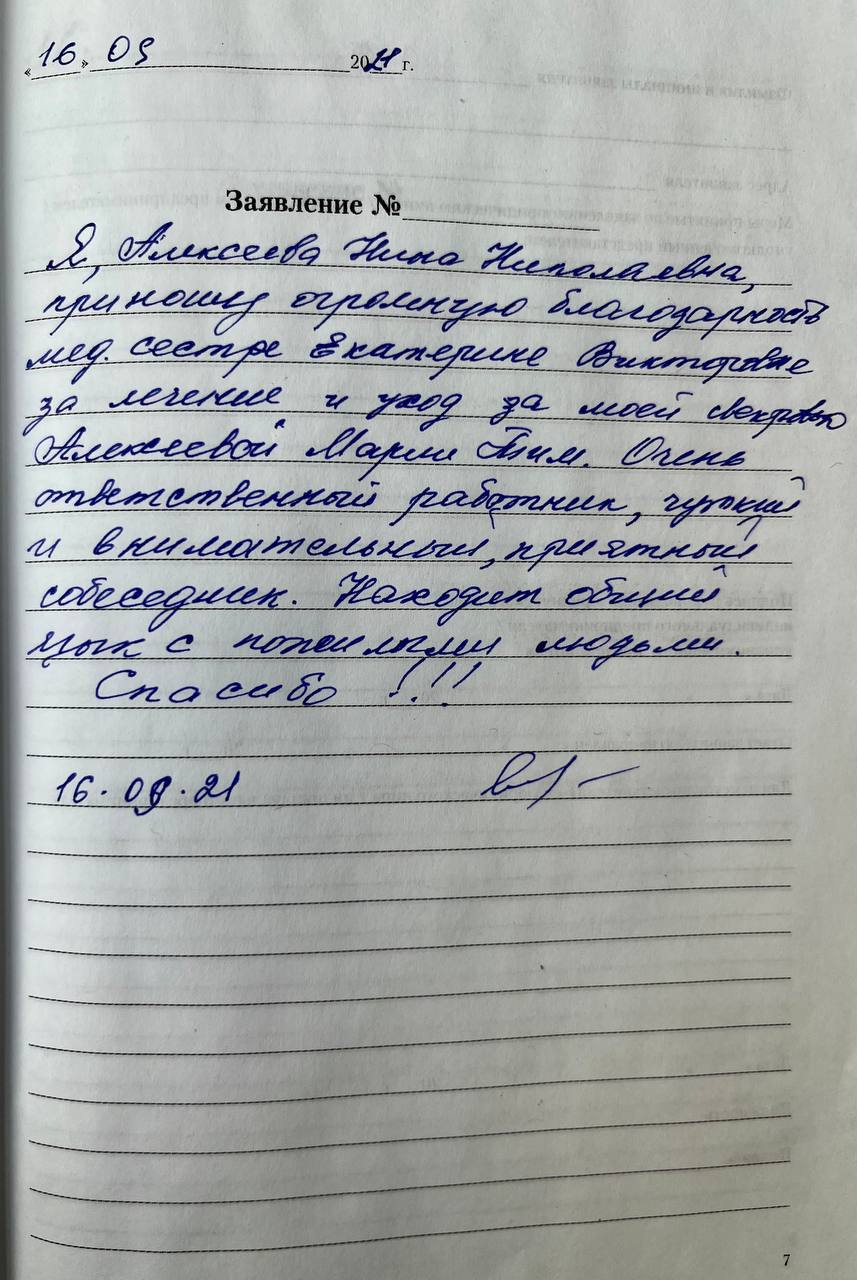 «16» 09 2021 г.
Заявление №
Я, Алексеева Нина Николаевна,
приношу огромную благодарность
мед. сестре Екатерине Викторовне
за лечение и уход за моей свекровью
Алексеевой Марии Тим. Очень
ответственный работник, чуткий
и внимательный, приятный
собеседник. Находит общий
язык с пожилыми людьми.
Спасибо !!!
16.09.21
7